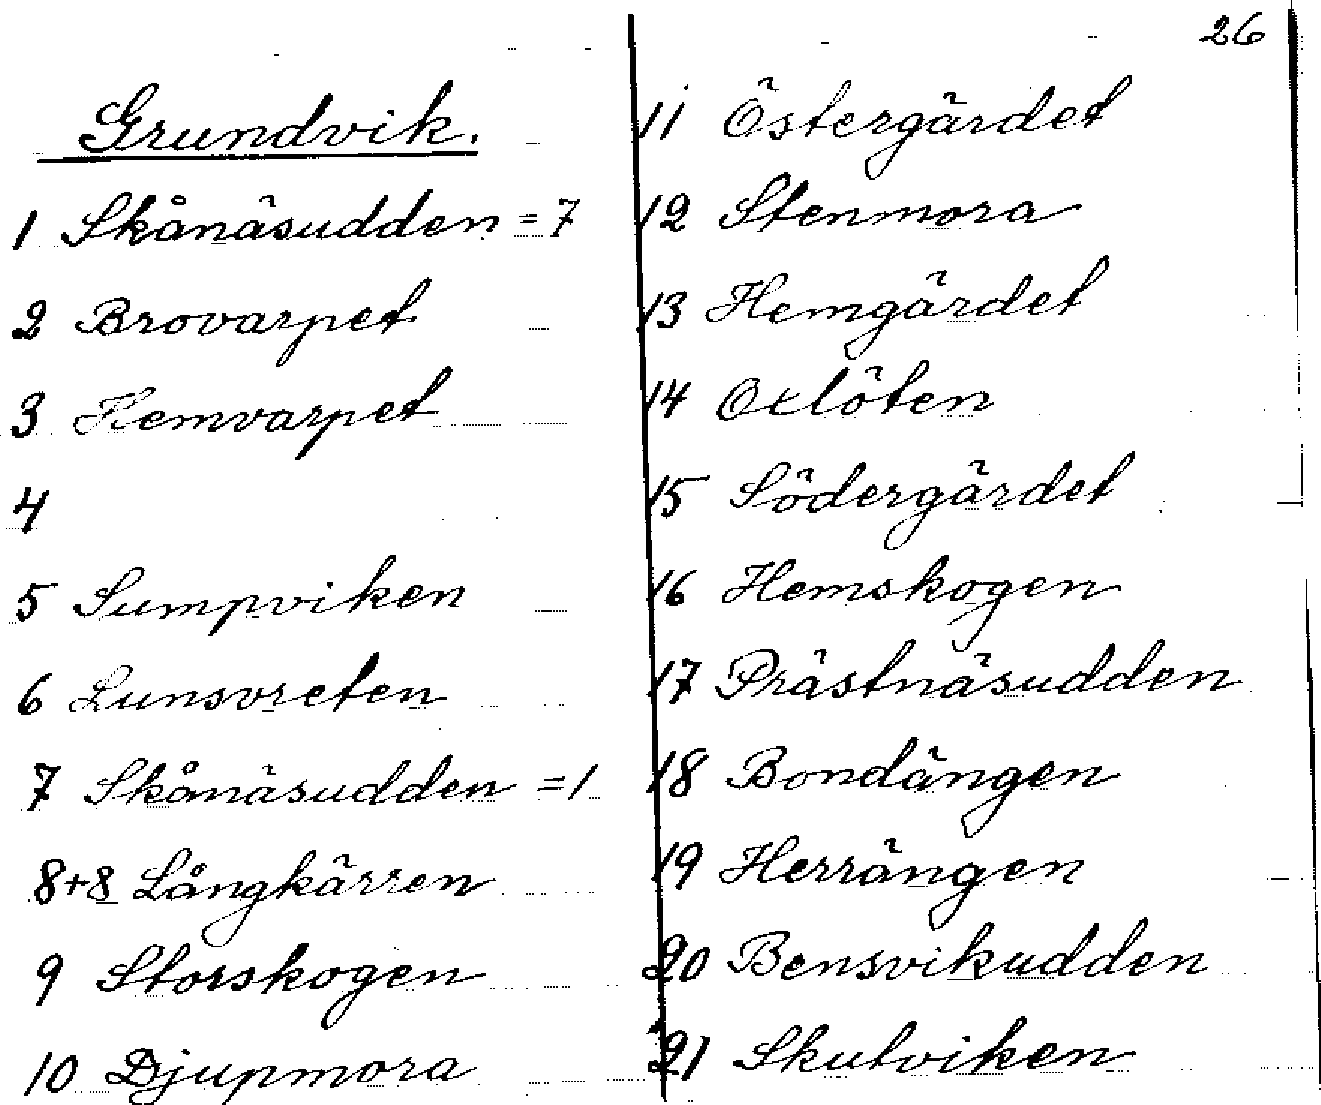 26
Grundvik.
1 Skånäsudden = 7
2 Brovarpet
3 Hemvarpet
4
5 Sumpviken
6 Lunsvreten
7 Skånäsudden = 1
8+8 Långkärren
9 Storskogen
10 Djupmora
11 Östergärdet
12 Stenmora
13 Hemgärdet
14 Oxlöten
15 Södergärdet
16 Hemskogen
17 Prästnäsudden
18 Bondängen
19 Herrängen
20 Bensvikudden
21 Skutviken